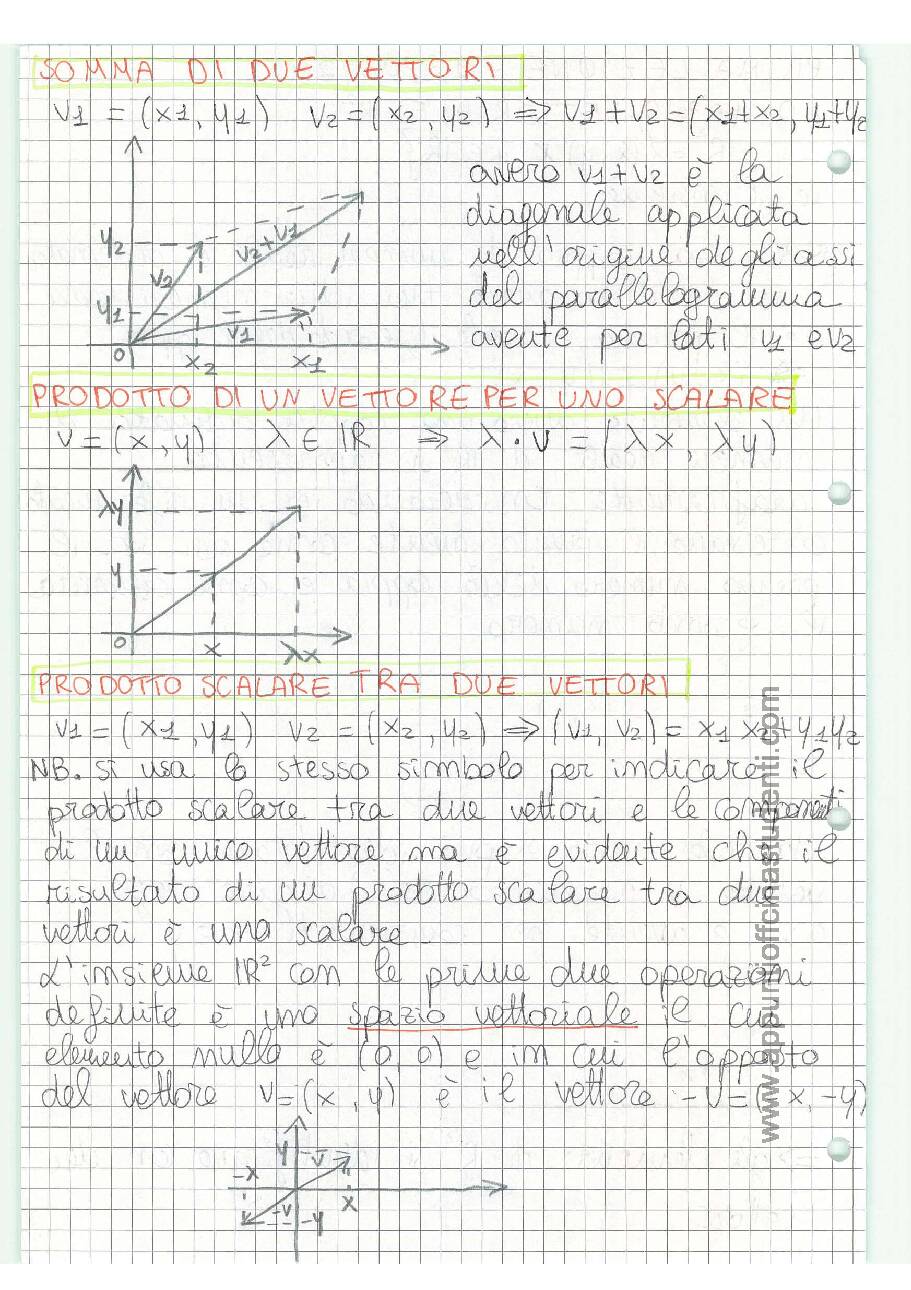 SOMMA DI DUE VETTORI
V1 = (x1, y1) V2 = (x2, y2) ⇒ V1 + V2 = (x1+x2, y1+y2
ovvero v1+v2 è la
diagonale applicata
nell'origine degli assi
del parallelogramma
avente per lati v1 e v2
y2
y1
V2
V2+V1
V1
0
x2
x1
PRODOTTO DI UN VETTORE PER UNO SCALARE
V = (x, y) λ ∈ IR ⇒ λ · V = (λx, λy)
λy
y
0
x
λx
PRODOTTO SCALARE TRA DUE VETTORI
V1 = (x1, y1) V2 = (x2, y2) ⇒ (V1, V2) = x1 x2 + y1 y2
NB. si usa lo stesso simbolo per indicare il
prodotto scalare tra due vettori e le componenti
di un unico vettore ma è evidente che il
risultato di un prodotto scalare tra due
vettori è uno scalare
L'insieme IR² con le prime due operazioni
definite è uno spazio vettoriale il cui
elemento nullo è (0, 0) e in cui l'opposto
del vettore V = (x, y) è il vettore -V = (-x, -y)
y
V
-x
x
-V
-y
0
www.appuntiofficinastudenti.com